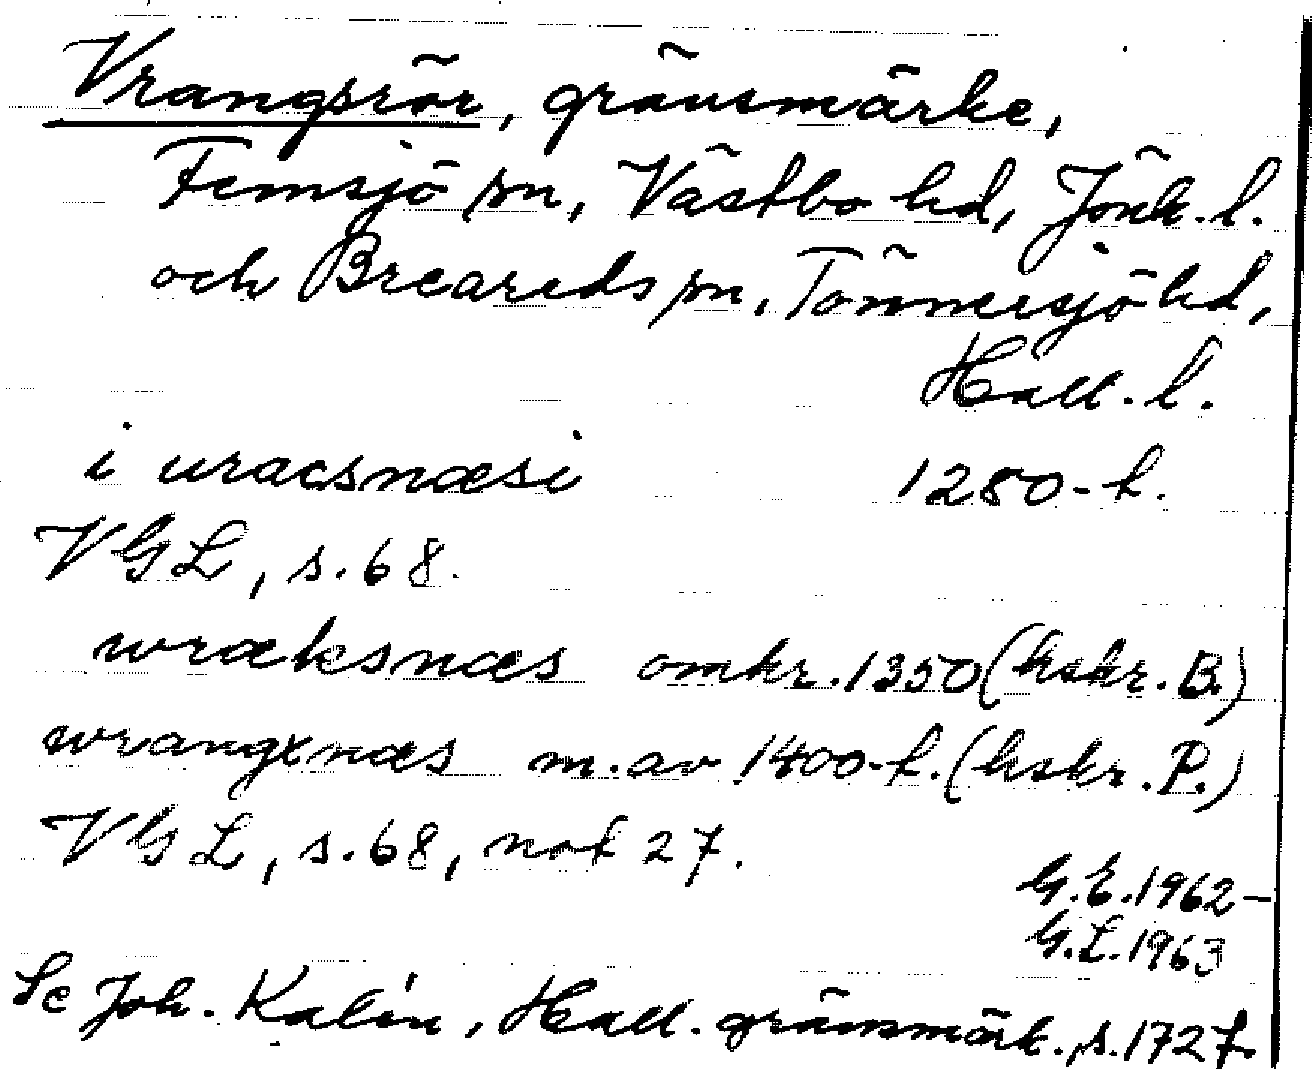 Vrangsrör, gränsmärke,
Femsjö sn, Västbo hd, Jönk. l.
och Breareds sn, Tönnersjö hd,
Hall. l.
i uracsnæsi 1280-t.
VGL, s. 68.
wræksnæs omkr. 1350 (hskr. B.)
wrangxnæs m. av 1400-t. (hskr. P.)
VGL, s. 68, not 27.
G.E. 1962 –
G.L. 1963
Se Joh. Kalén, Hall. gränsmärk., s. 172 f.